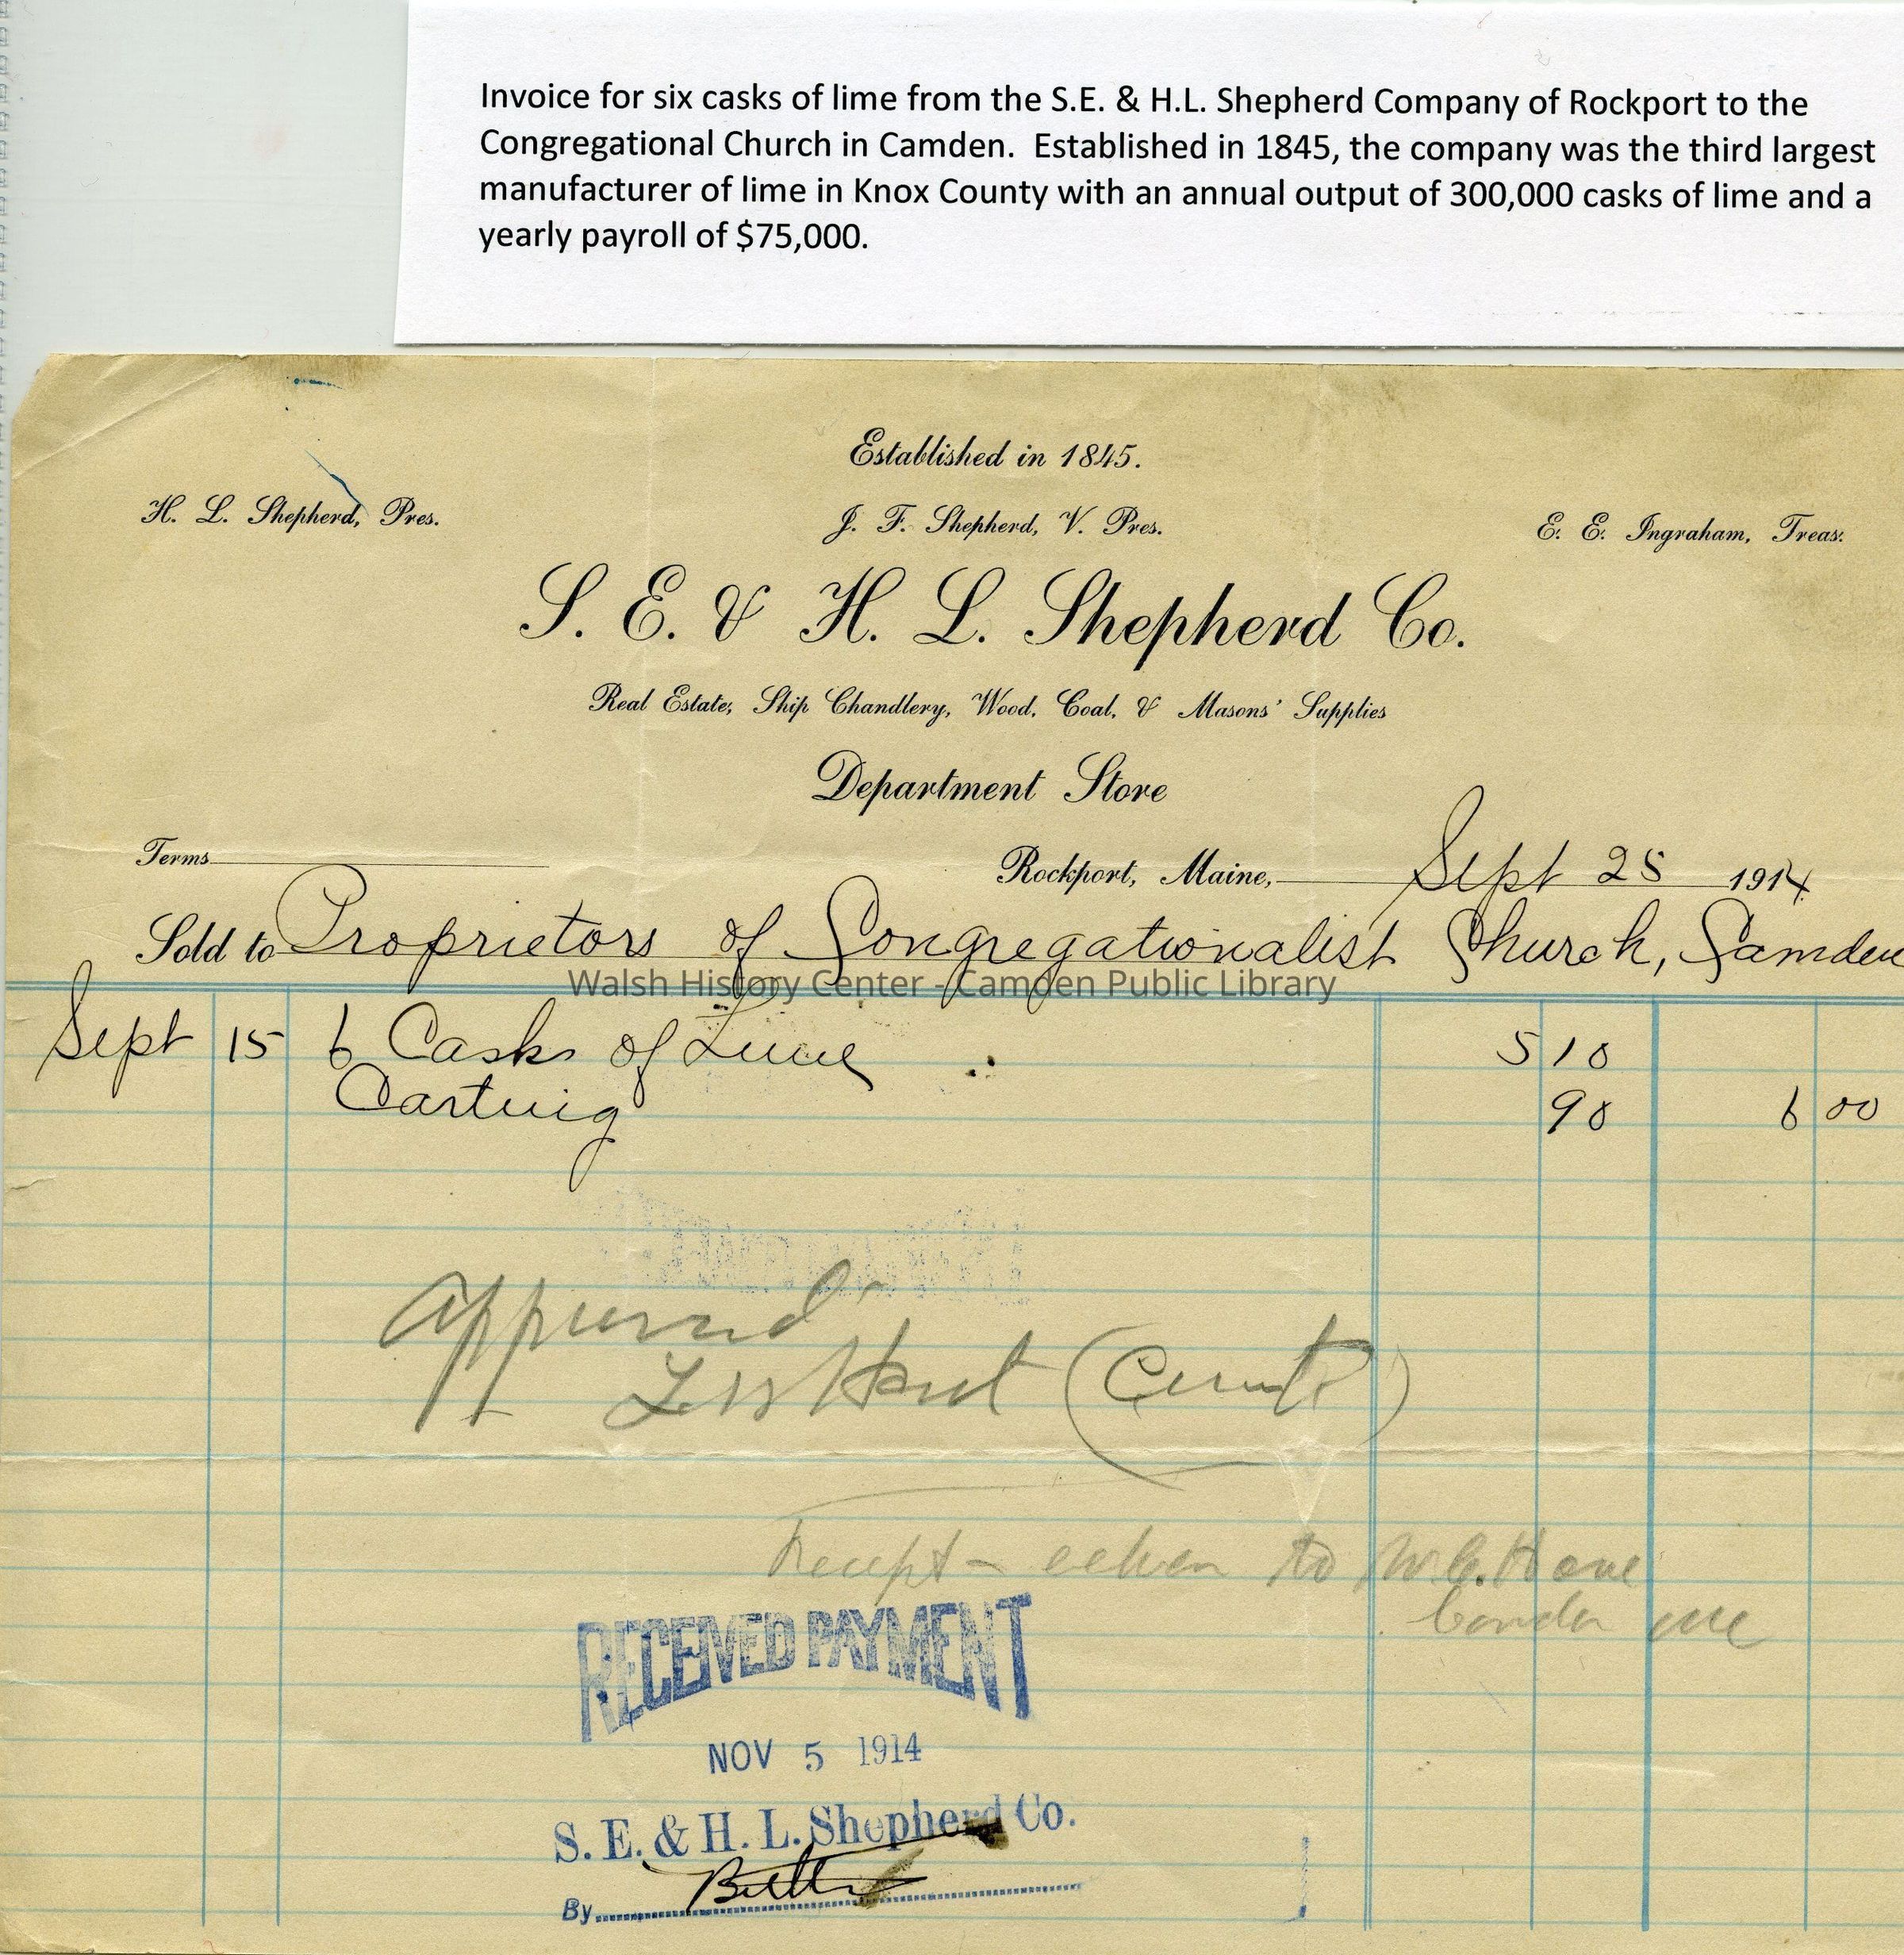 Invoice for six casks of lime from the S.E. & H.L. Shepherd Company of Rockport to the
Congregational Church in Camden. Established in 1845, the company was the third largest
manufacturer of lime in Knox County with an annual output of 300,000 casks of lime and a
yearly payroll of $75,000.
Established in 1845.
H. L. Shepherd, Pres. J. F. Shepherd, V. Pres. E. E. Ingraham, Treas.
S. E. & H. L. Shepherd Co.
Real Estate, Ship Chandlery, Wood, Coal, & Masons' Supplies
Department Store
Terms Rockport, Maine, Sept 25 1914
Sold to Proprietors of Congregationalist Church, Camden
Walsh History Center - Camden Public Library
Sept 15 6 Casks of Lime 5 10
Carting 90 6 00
Approved
Receipt to
RECEIVED PAYMENT
NOV 5 1914
S. E. & H. L. Shepherd Co.
By